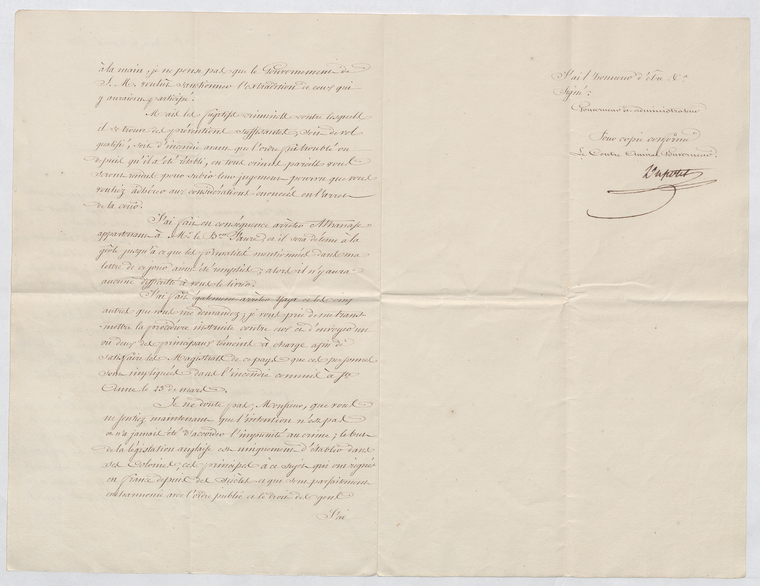 à la main, je ne pense pas que le Gouvernement de
S. M. voulût sanctionner l'extradition de ceux qui
y auraient participé.
Mais les fugitifs criminels contre lesquels
il se trouve des préventions suffisantes, soit de vol
qualifié, soit d'incendie avant que l'ordre fût troublé ou
depuis qu'il a été établi, ou tous crimes pareils vous
seront rendus pour subir leur jugement pourvu que vous
vouliez adhérer aux considérations énoncées en l'arrêt
de la
J'ai fait en conséquence arrêter Athanase
appartenant à Mr. le Bon. Faure et il sera détenu à la
geôle jusqu'à ce que les formalités mentionnées dans ma
lettre de ce jour aient été remplies, alors il n'y aura
aucune difficulté à vous le livrer.
J'ai fait également arrêter Yaya et les cinq
autres que vous me demandez; je vous prie de me trans-
mettre la procédure instruite contre eux et d'envoyer un
ou deux des principaux témoins à charge afin de
satisfaire les Magistrats de ce pays que ces personnes
sont impliquées dans l'incendie commis à Ste
Anne le 23 de mars.
Je ne doute pas, Monsieur, que vous
ne sentiez maintenant que l'intention n'est pas
et n'a jamais été d'accorder l'impunité au crime; le but
de la législation anglaise est uniquement d'établir dans
ses Colonies, ces principes à ce sujet qui ont régné
en france depuis des siècles et qui sont parfaitement
en harmonie avec l'ordre public et le droit des gens
J'ai
J'ai l'honneur d'être &a
Signé:
Gouverneur & administrateur
Pour copie conforme
Le Contre Amiral Gouverneur,
Dupotet